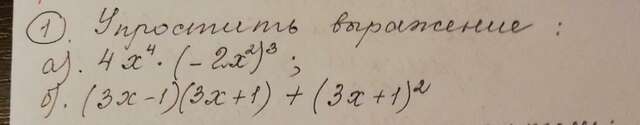 ① Упростить выражение :
а). 4x⁴ · (-2x²)³ ;
б). (3x-1)(3x+1) + (3x+1)²